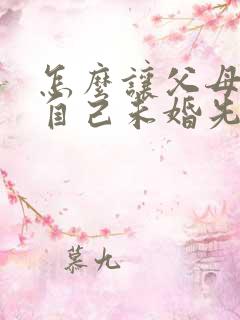 怎麼讓父母
自己未婚先
慕九